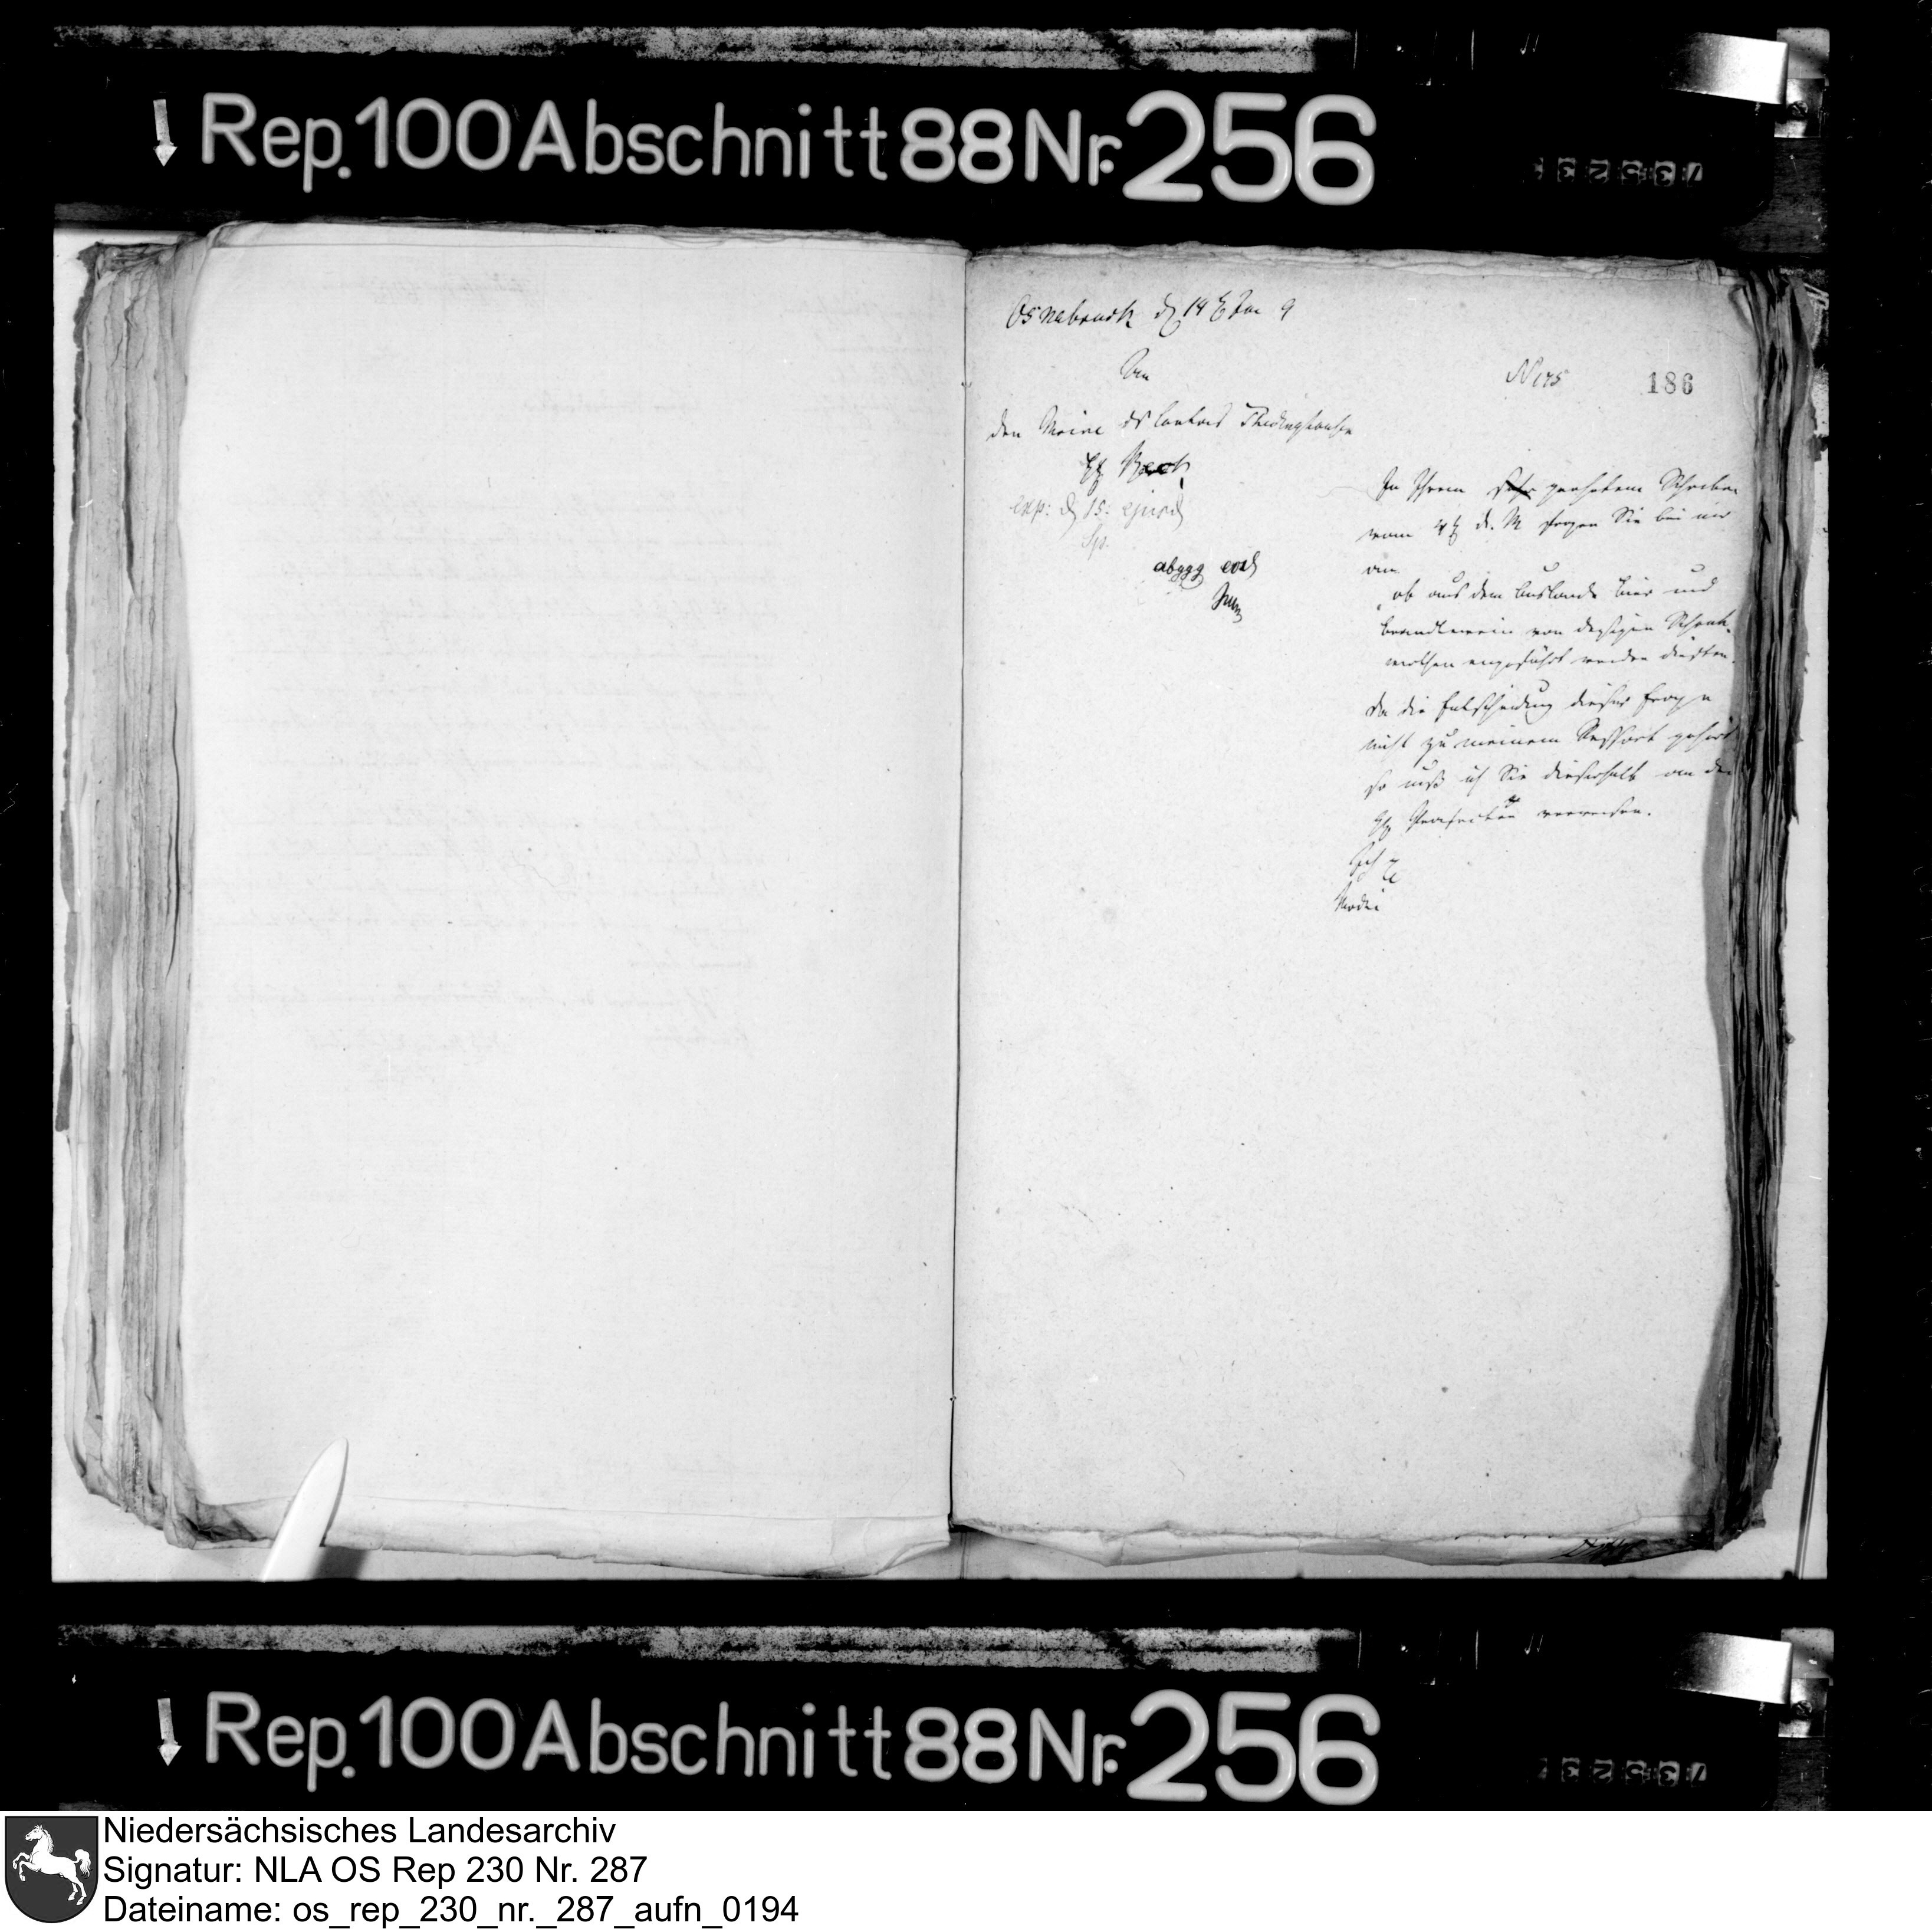 Rep. 100 Abschnitt 88 Nr. 256
Osnabruck d 14 Jan 9
An
N 175
186
den Maire des Cantons Thedinghausen
H
exp: d 15. ejusd
abggg eod
In Ihrem geehrtem Schreiben
vom 4 d. M fragen Sie bei mir
an
ob aus dem Auslande Bier und
Brandtwein von dasigen Schenk-
wirthen eingeführt werden dürften.
Da die Entscheidung dieser Frage
nicht zu meinem Ressort gehört
so muß ich Sie dieserhalb an den
H Praefecten verweisen.
Rep. 100 Abschnitt 88 Nr. 256
Niedersächsisches Landesarchiv
Signatur: NLA OS Rep 230 Nr. 287
Dateiname: os_rep_230_nr._287_aufn_0194